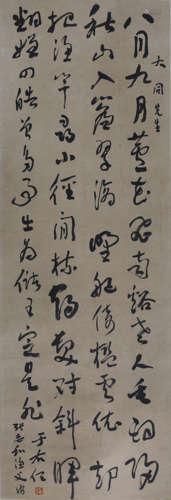 大同先生
八月九月蘆花飛南谿老人垂釣歸
秋山入簾翠滴滴野艇倚檻雲依依却
把漁竿尋小徑閒梳鶴髮對斜暉
翻嫌四皓曾多事出為儲王定是非
于右任
張志和漁父詩